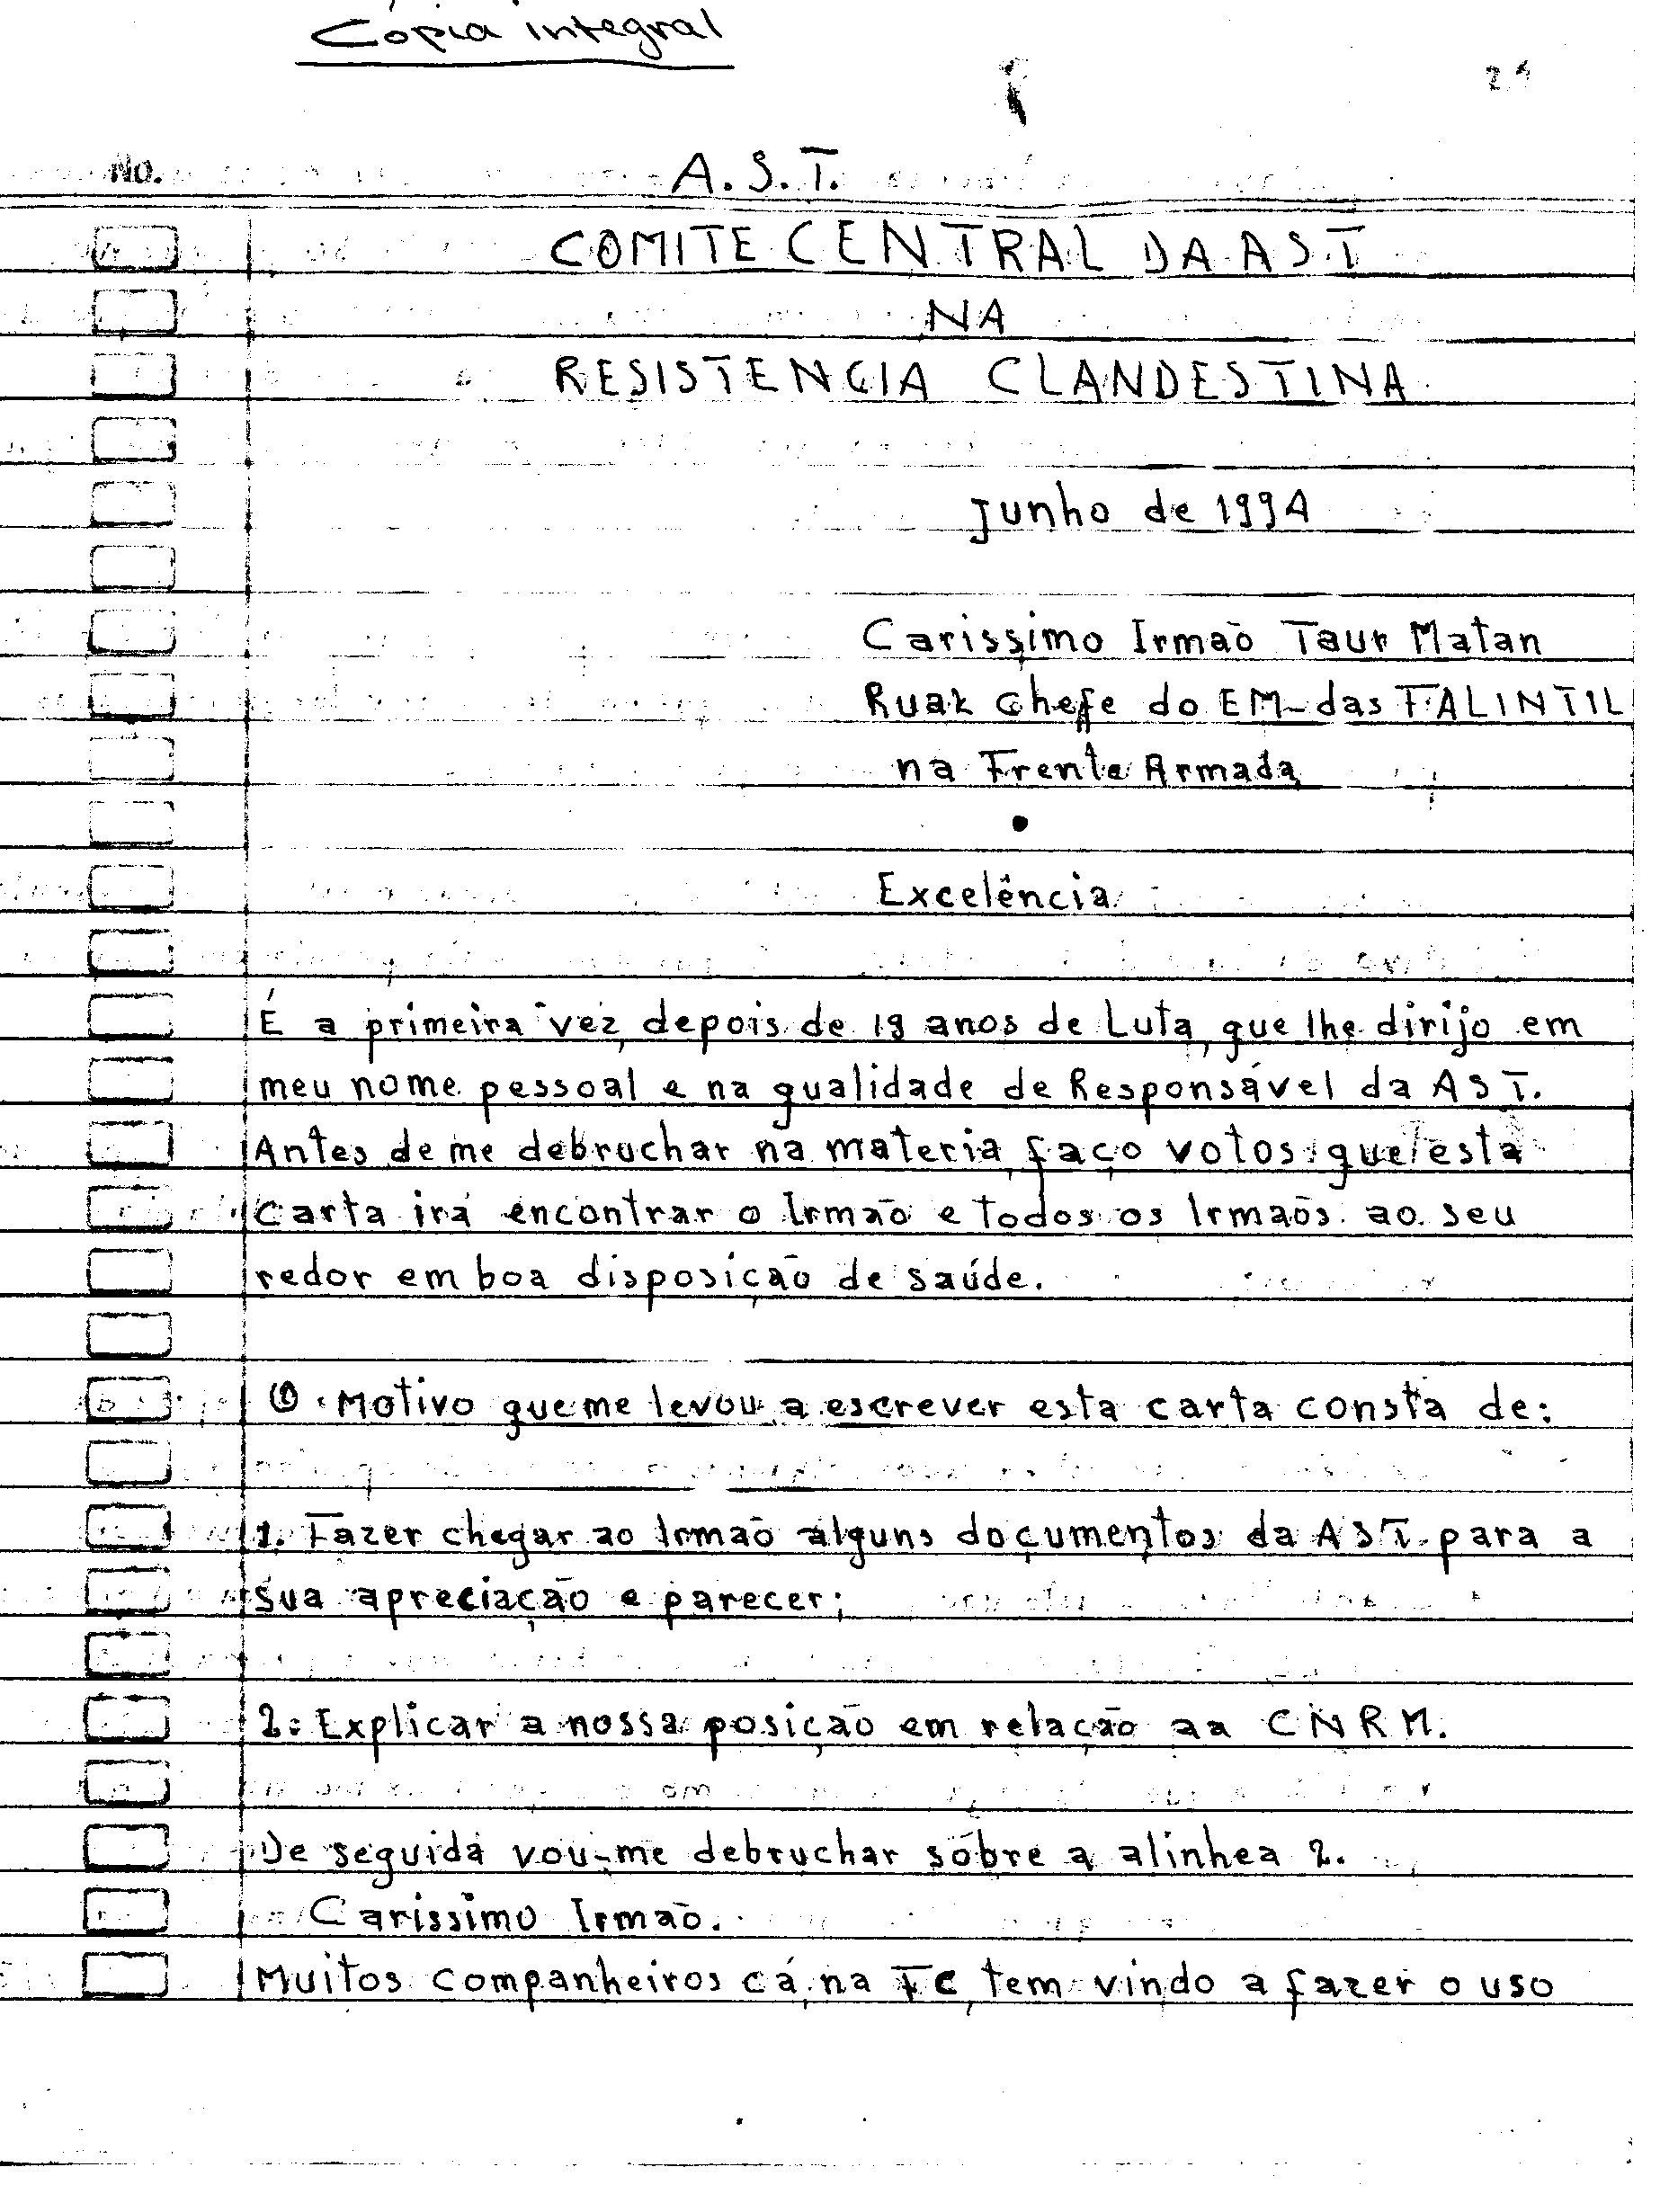 Cópia integral
24
No.
A.S.T.
COMITE CENTRAL DA AST
NA
RESISTENCIA CLANDESTINA
Junho de 1994
Carissimo Irmão Taur Matan
Ruak Chefe do EM-das FALINTIL
na Frente Armada
Excelência
É a primeira vez, depois de 19 anos de Luta, que lhe dirijo em
meu nome pessoal e na qualidade de Responsável da AST.
Antes de me debruchar na materia, faço votos que esta
carta irá encontrar o Irmão e todos os Irmaõs ao seu
redor em boa disposição de saúde.
O Motivo que me levou a escrever esta carta consta de:
1. Fazer chegar ao Irmaõ alguns documentos da AST para a
sua apreciação e parecer;
2. Explicar a nossa posição em relação aa CNRM.
De seguida vou-me debruchar sôbre a alinhea 2.
Carissimo Irmaõ.
Muitos companheiros cá, na FC, tem vindo a fazer o uso